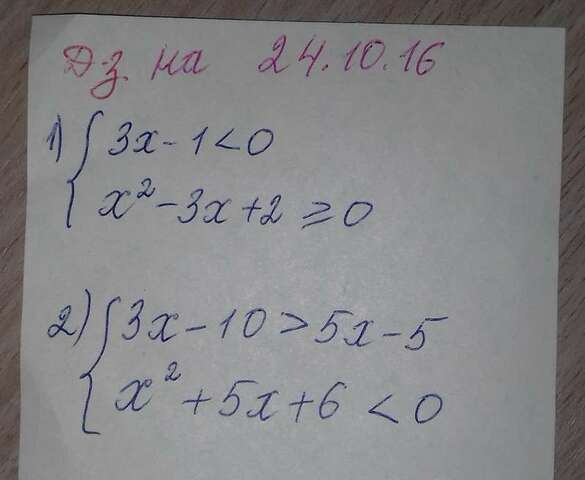 Дз на 24.10.16
1) { 3x - 1 < 0
x² - 3x + 2 ≥ 0
2) { 3x - 10 > 5x - 5
x² + 5x + 6 < 0